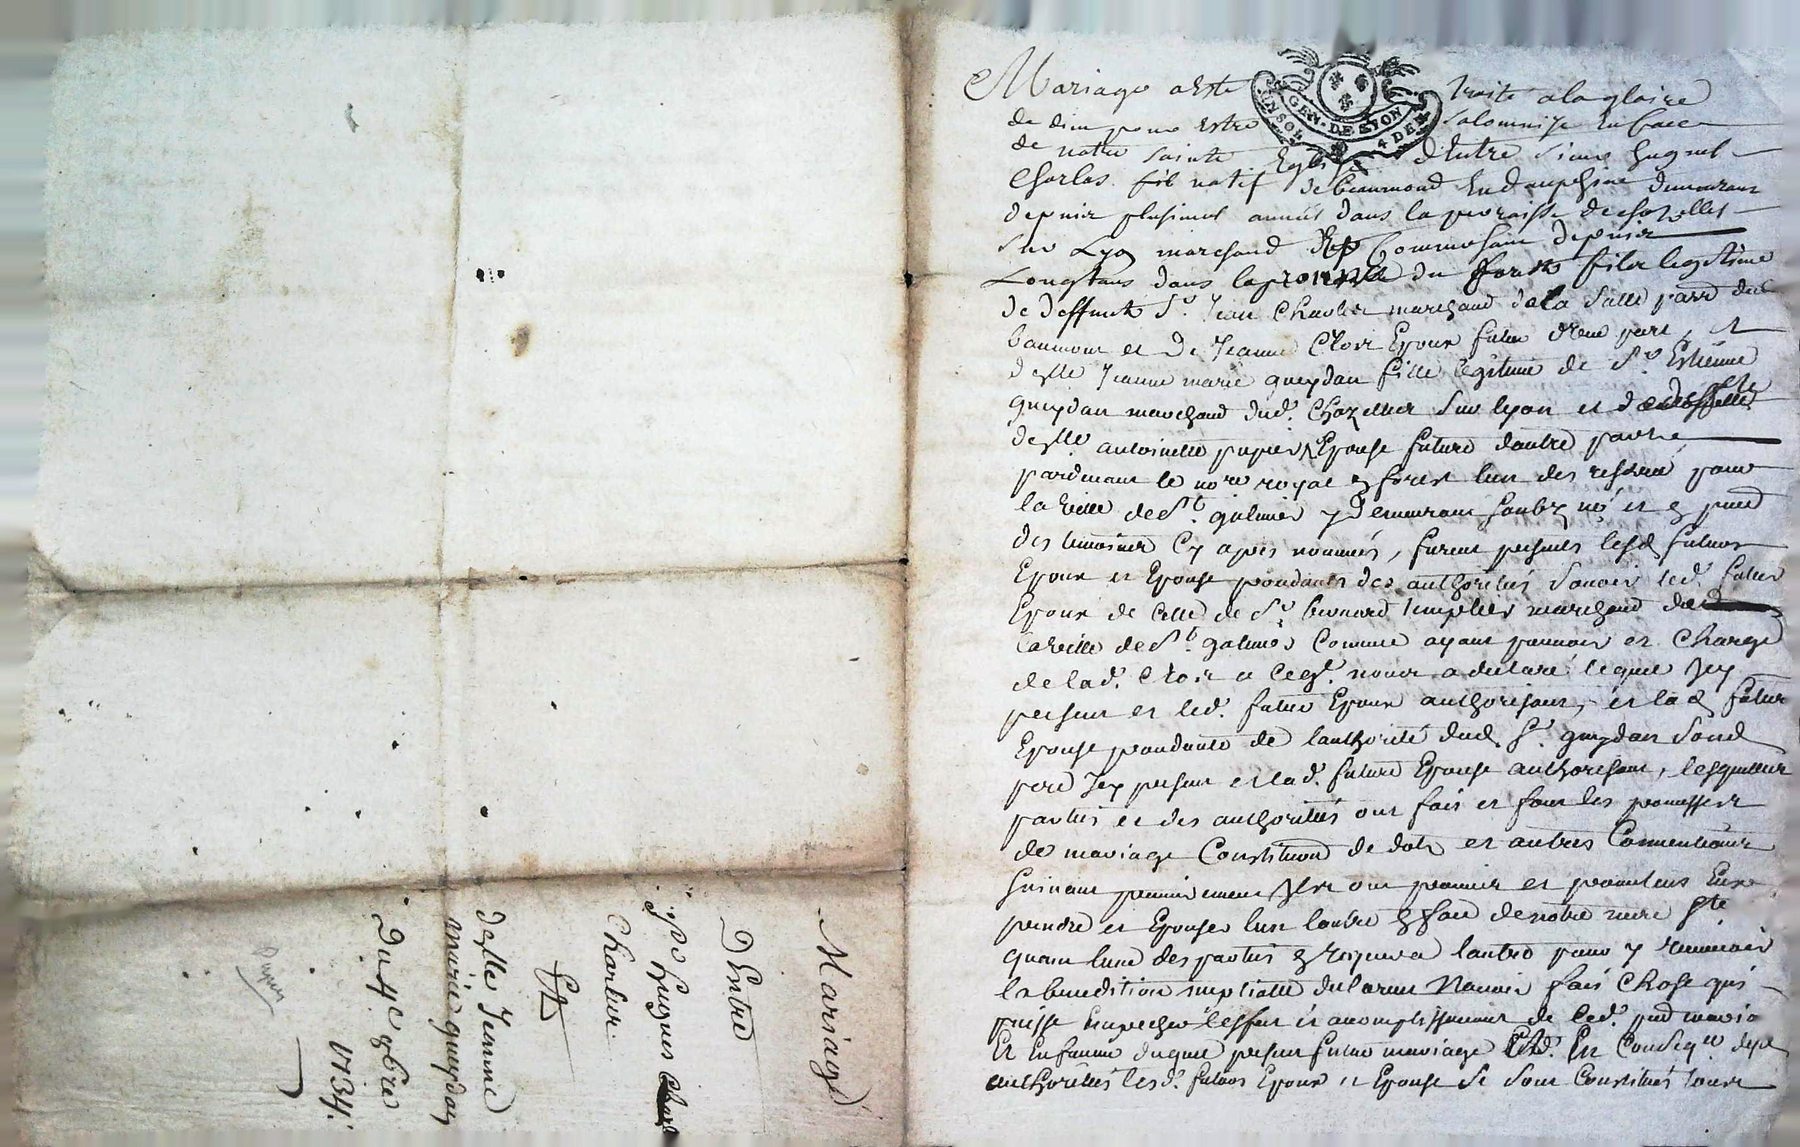 Mariage a esté traité a la gloire
GEN. DE LYON
4 DEN
de dieu pour estre solomnisé en face
de notre sainte Eglise d'Entre sieur hugues
Charles fils natif de beaumond En dauphiné demeurant
depuis plusieurs années dans la parroisse de chazelles
sur Lyon marchand commissaire depuis
Longtans dans la province du forest fils legitime
de deffunt Sr. Jean Charles marchand de la Salle
baumont et de Jeanne Cloir Epoux futur d'une part, et
deslle Jeanne marie queydan fille legitime de Sr. Estienne
queydan marchand dud. Chazelles sur lyon et de
deslle antoinette pupier Epouse future d'autre partie
pardevant le nore royal en forest lun des reservé pour
la ville de St. galmier y demeurant soubzné et en pnce
des temoins Cy apres nommés, furent presents lesd. futurs
Epoux et Epouse procedants des authorités savoir led. futur
Epoux de celle de Sr. benoard templier marchand de
la ville de St. galmier Comme ayant pouvoir et Charge
de lad. Cloir a ce qu'. nous a declaré lequel Icy
present et led. futur Epoux authorisant, et la d. future
Epouse procedante de lauthorité dud. Sr. queydan Sond
pere Icy present et lad. future Epouse authorisant, lesquelles
parties et des authorités ont fait et font les promesses
de mariage Constitution de dots et autres Conventions
suivant premierement Ils ont promis et promettent Eux
prendre et Epouser lun lautre en face de notre mere Ste
quant lune des parties en requerra lautre pour y recevoir
la benediction nuptialle declarant N'avoir fait Chose qui
puisse Empecher leffet et acomplissement de led. pnt mariage
Et En faveur duquel present futur mariage Et En Conseqce desd.
authorités lesd. futurs Epoux et Epouse se sont Constitués tous
Mariage
D'Entre
Sr. hugues
Charles.
Et
deslle Jeanne
marie queydan
Du 4e xbre
1734.
Pupier